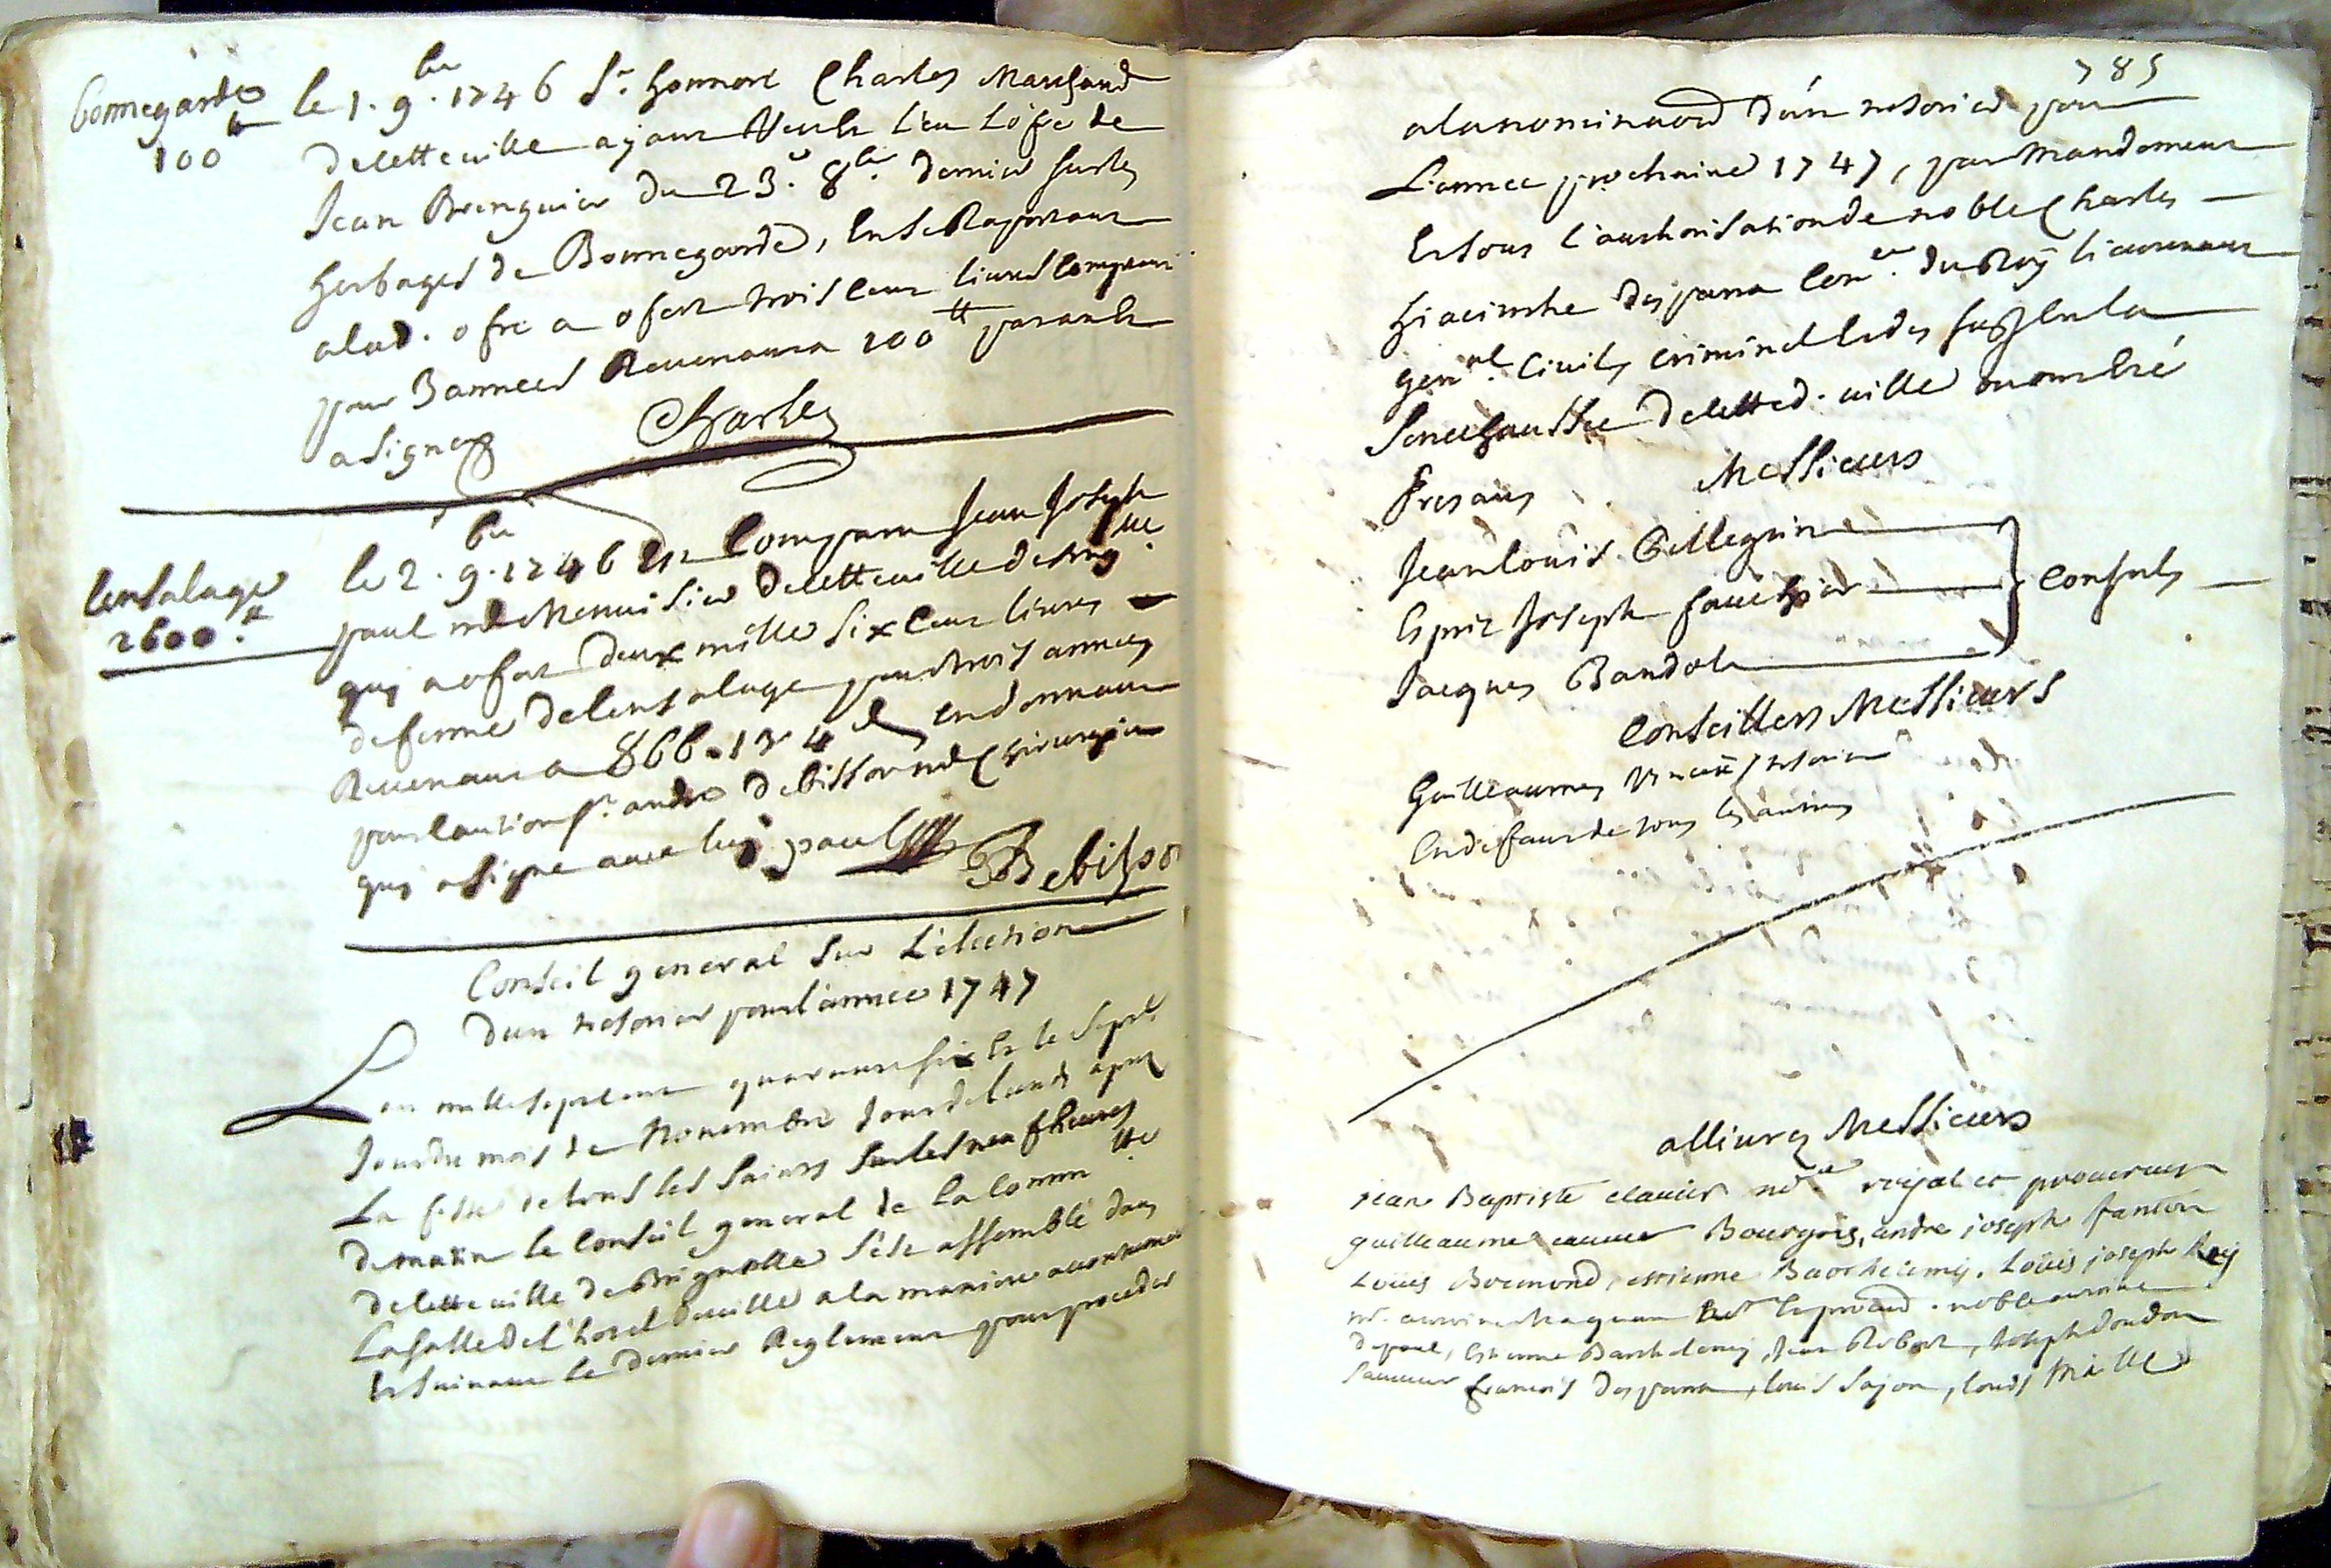 bonnegarde
100 tt
le 1. 9.bre 1746 Sr. honnoré Charles Marchand
de cette ville ayant veu et leu l'ofre de
Jean Brenguier du 23. 8bre. dernier sur les
herbages de Bonnegarde, en se Raportant
alad. ofre a ofert trois cent livres comptant
pour 3 années Revenant a 100 tt par an et
a signé Charles
censalage
2600 tt
le 2. 9.bre 1746 est comparu Jean Joseph
paul md Menuisier de cette ville de
quy a ofert deux mille six cent livres
de ferme de censalage pour trois années
Revenant a 866. 13 4 d en donnant
pour caution Sr. andré debisson md chirurgien
quy a signé avec luy paul Debisson
Conseil general sur L'election
dun tresorier pour l'année 1747
L'an mille sept cent quarante six et le sept
Jour du mois de Novembre Jour de lundi apres
La feste de tous les saints sur les neuf heures
de matin le Conseil general de la comm tte.
de cette ville de Brignolle s'est assemblé dans
La salle de l'hotel de ville a la maniere accoutumée
et suivant le dernier Reglement pour proceder
785
a la nomination d'un tresorier pour
L'année prochaine 1747, par mandement
et sous l'authorisation de noble Charles
hiacinthe despana Coner. du Roy lieutenant
genal. civil, criminel et des en la
Senechaussée de cette d. ville
Presans Messieurs
Jean louis Pellegrin
Esprit Joseph fauchier Consuls
Jacques Bandol
Conseillers Messieurs
Guilleaumes Vincens tresorier
En defaut de tous les autres
allivrez Messieurs
jean Baptiste clavier no.re royal et procureur
guilleaume Bourgois, andre joseph fanton
Loüis Boemond, estienne Barthelemy, Loüis joseph Rey
noble antoine
depaul, Estienne Barthelemy, Jean Robert, Joseph dondon
francois despana, louis sajon, louis Mille